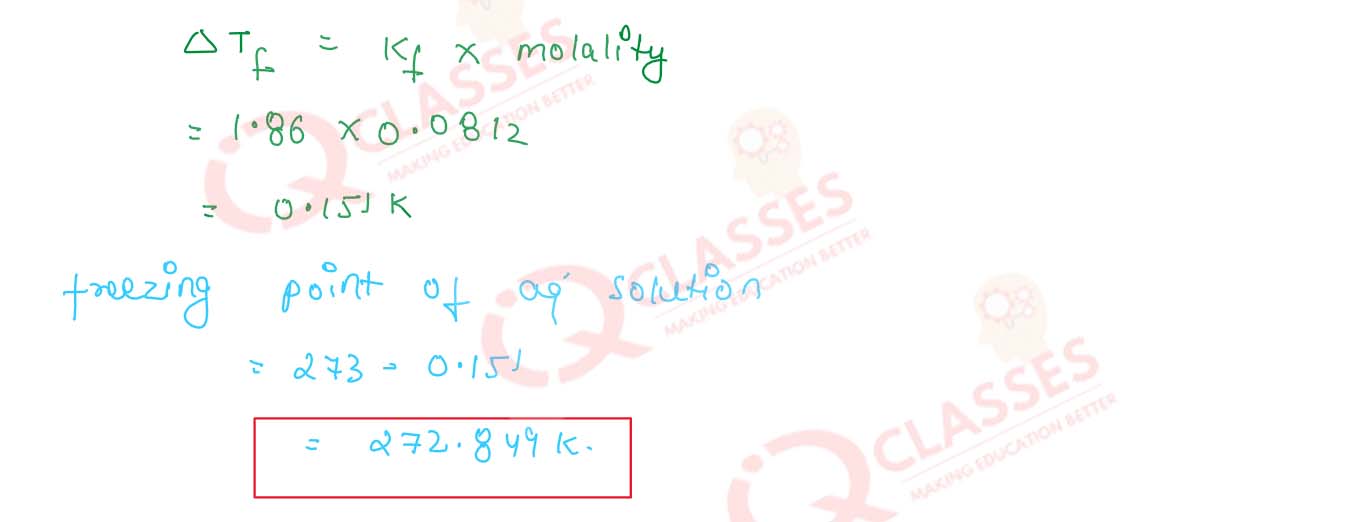 ΔTf = Kf × molality
= 1.86 × 0.0812
= 0.151 K
freezing point of aq solution
= 273 - 0.151
= 272.849 K.
IQ CLASSES
MAKING EDUCATION BETTER
IQ CLASSES
MAKING EDUCATION BETTER
IQ CLASSES
MAKING EDUCATION BETTER